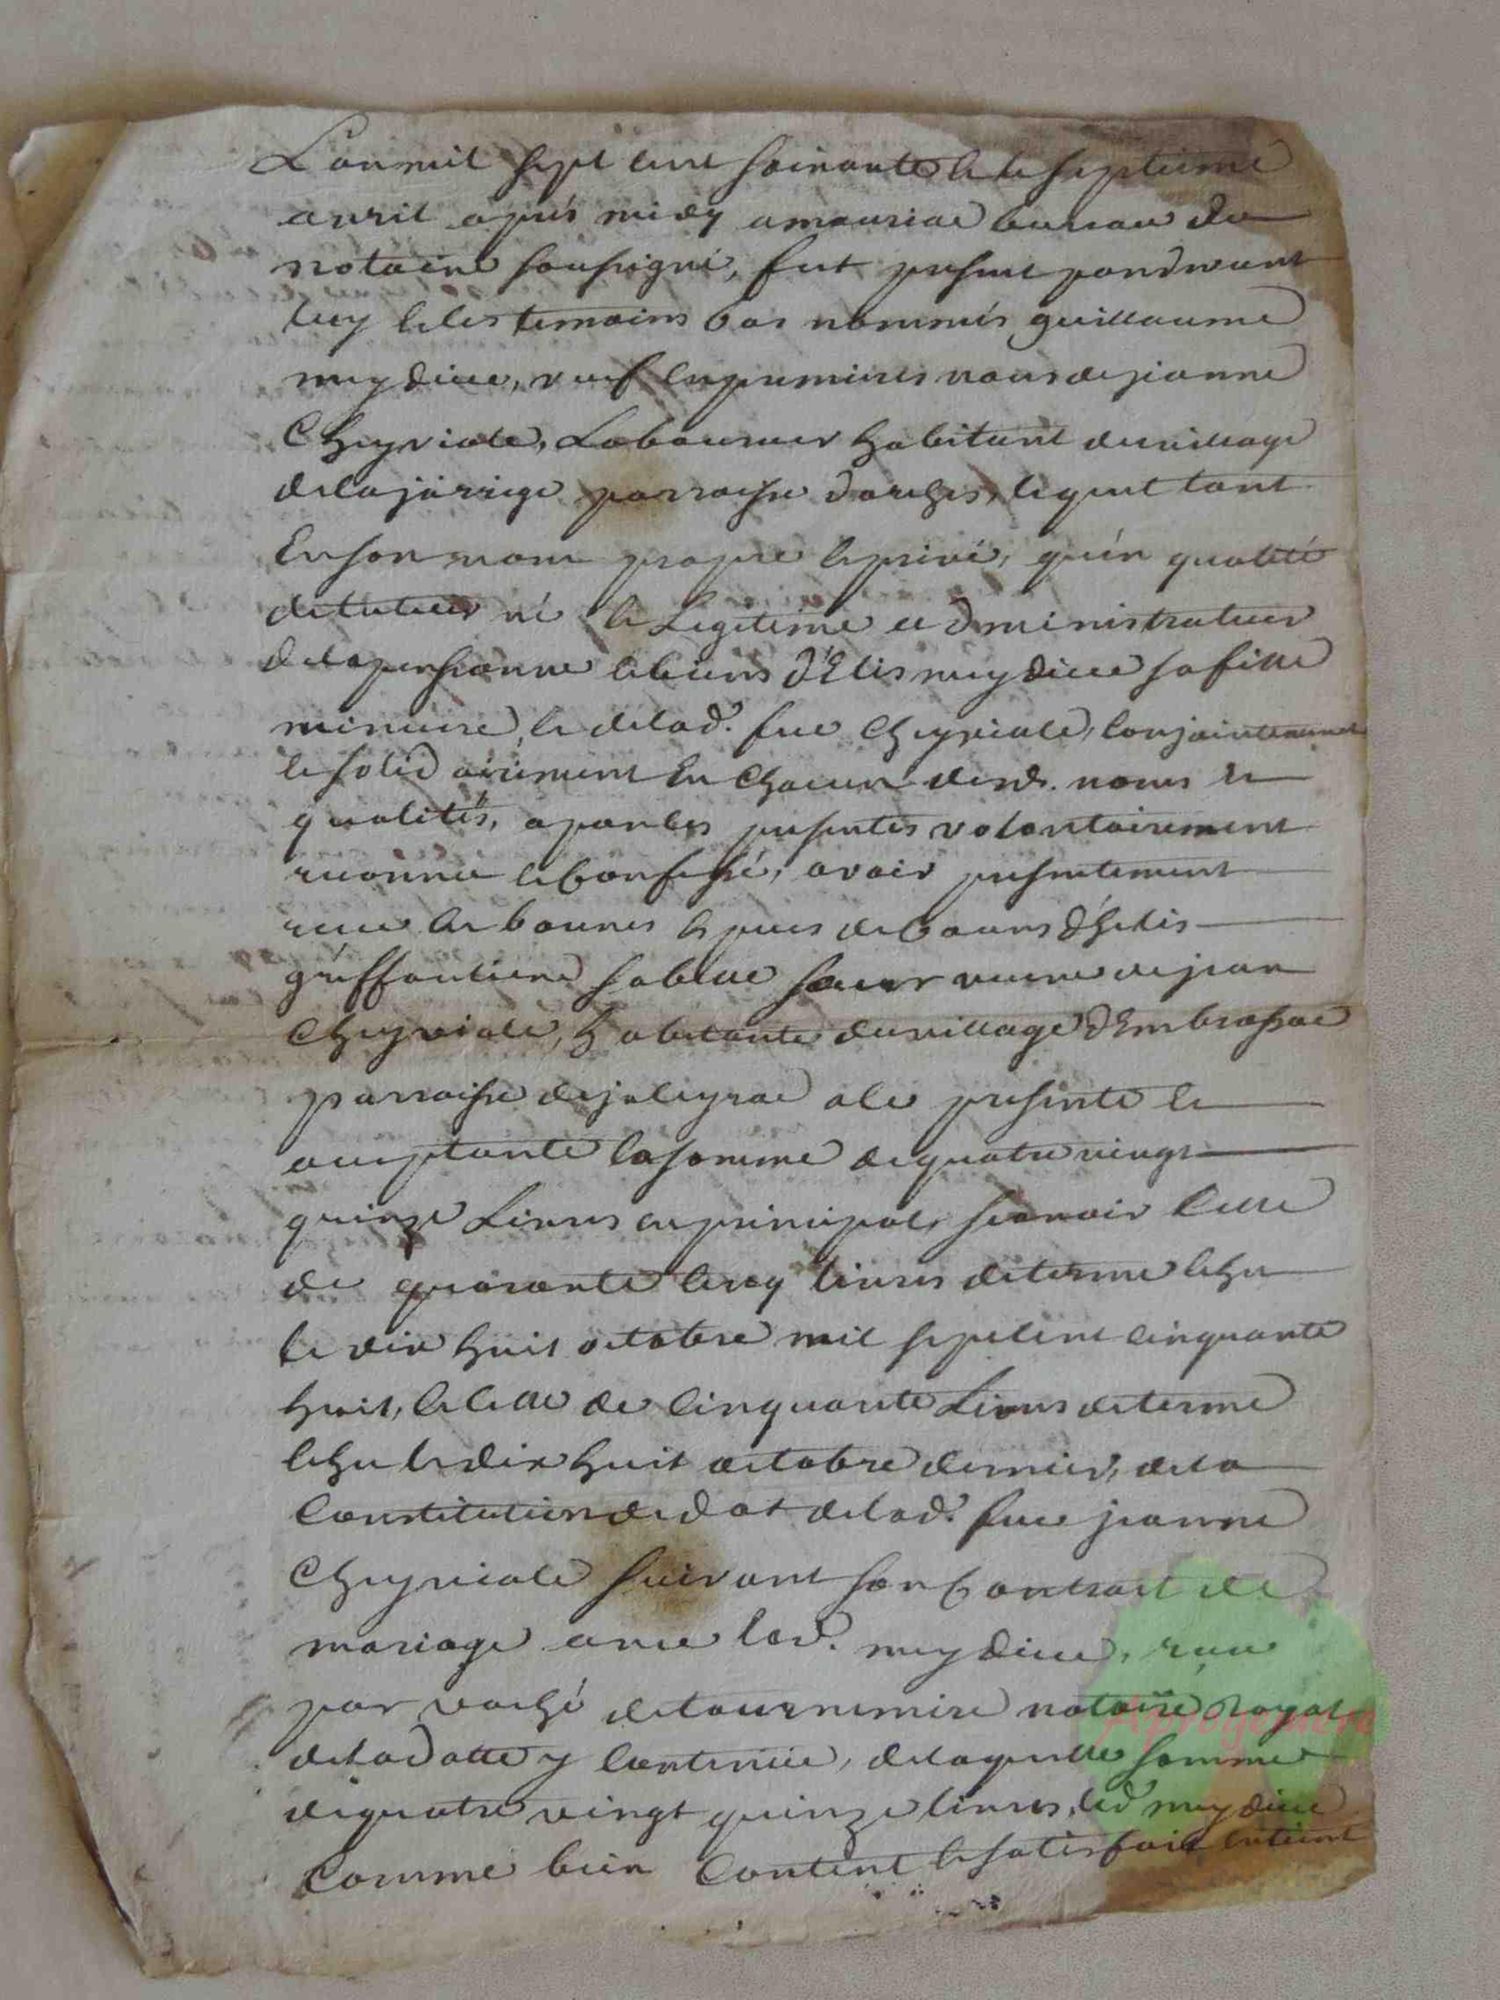 L'an mil sept cent soixante & le septieme
avril apres midy a mauriac bureau du
notaire soussigné, fut present pardevant
luy & les temoins bas nommés guillaume
meydieu, veuf en premieres noces de jeanne
Cheyviale, Laboureur habitant du village
de la jarrige parroisse d'arches, lequel tant
En son nom propre & privé, qu'en qualité
de tuteur né & Legitime administrateur
de la personne & biens d'Elis meydieu sa fille
mineure, & de lad. feue Cheyviale, conjointement
& solidairement En chacun desd. noms &
qualités, a par les presentes volontairement
reconnu & confessé, avoir presentement
receu & bounes & pieces de cours d'hélis
greffouliere sa belle soeur veuve de jean
Cheyviale, habitante du village d'Embrassac
parroisse de jaleyrac a le presente &
acceptante la somme de quatre vingt
quinze Livres en principal, scavoir celle
de quarante cinq livres de terme echu
le dix huit octobre mil sept cent cinquante
huit, & celle de cinquante Livres de terme
echu le dix huit octobre dernier, de la
Constitution de dot de lad. feue jeanne
Cheyviale suivant son contract de
mariage avec led. meydieu, receu
par vaché de tournemire notaire Royal
de la datte y contenüe, de laquelle somme
de quatre vingt quinze livres, led meydieu
comme bien content & satisfait en tient
Aprogemere